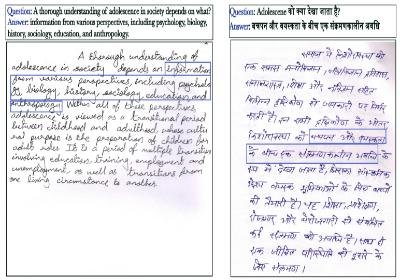 Question: A thorough understanding of adolescence in society depends on what?
Answer: information from various perspectives, including psychology, biology,
history, sociology, education, and anthropology.
A thorough understanding of
adolescence in society depends on information
from various perspectives, including psychology
biology, history, sociology, education, and
anthropology. Within all of these perspectives
adolescence is viewed as a transitional period
between childhood and adulthood, whose cultu
ral purpose is the preparation of children for
adult roles. It is a period of multiple transitions
involving education, training, employment and
unemployment, as well as transitions from
one living circumstance to another.
Question: Adolescene को क्या देखा जाता है?
Answer: बचपन और वयस्कता के बीच एक संक्रमणकालीन अवधि
समाज में किशोरावस्था की
एक समझ मनोविज्ञान, जीवविज्ञान, इतिहास,
समाजशास्त्र, शिक्षा और नृविज्ञान सहित
विभिन्न दृष्टिकोण से जानकारी पर निर्भर
करती है। इन सभी दृष्टिकोण के भीतर
किशोरावस्था को बचपन और वयस्कता
के बीच एक संक्रमणकालीन अवधि के
रूप में देखा जाता है, जिसका सांस्कृतिक
उद्देश्य वयस्क भूमिकाओं के लिए बच्चों
की तैयारी है। यह शिक्षा, प्रशिक्षण,
रोजगार और बेरोजगारी से संबंधित
कई संक्रमण की अवधि है। साथ ही
एक जीवित परिस्थिति से दूसरे के
लिए संक्रमण।